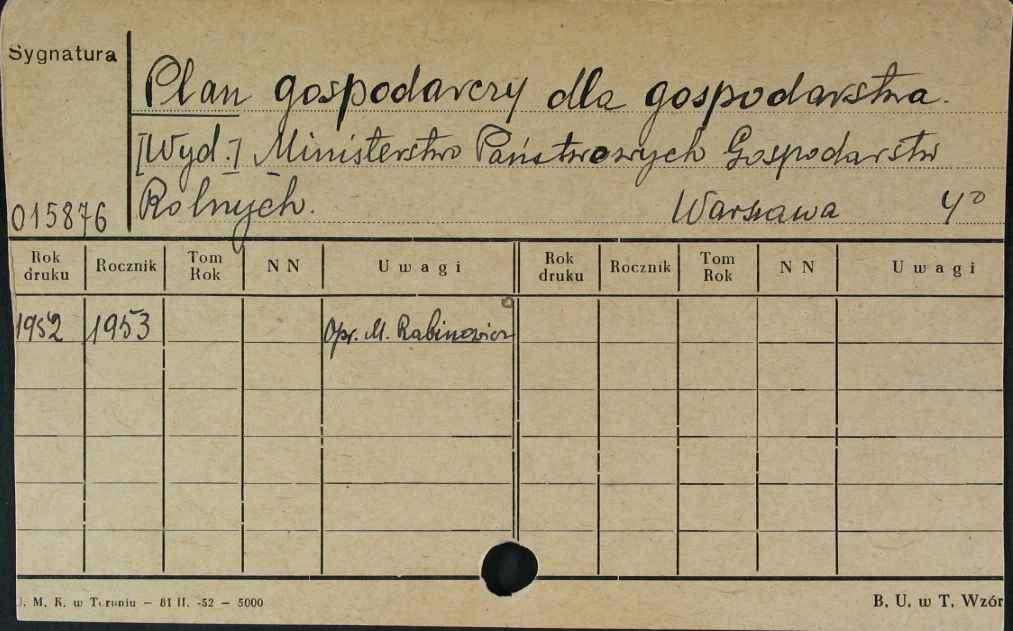 Sygnatura
Plan gospodarczy dla gospodarstwa.
[Wyd.] Ministerstwo Państwowych Gospodarstw
Rolnych. Warszawa 4°
015876
Rok druku Rocznik Tom Rok N N U w a g i Rok druku Rocznik Tom Rok N N U w a g i
1952 1953 Opr. M. Rabinowicz
J. M. K. w Toruniu – 81 II. -52 – 5000 B. U. w T. Wzór